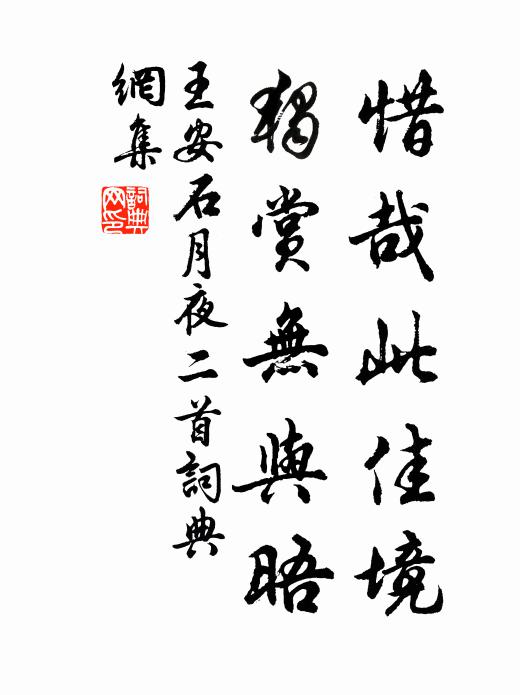 惜哉此佳境
獨賞無與晤
王安石月夜二首詞典
網集
詞典
网印